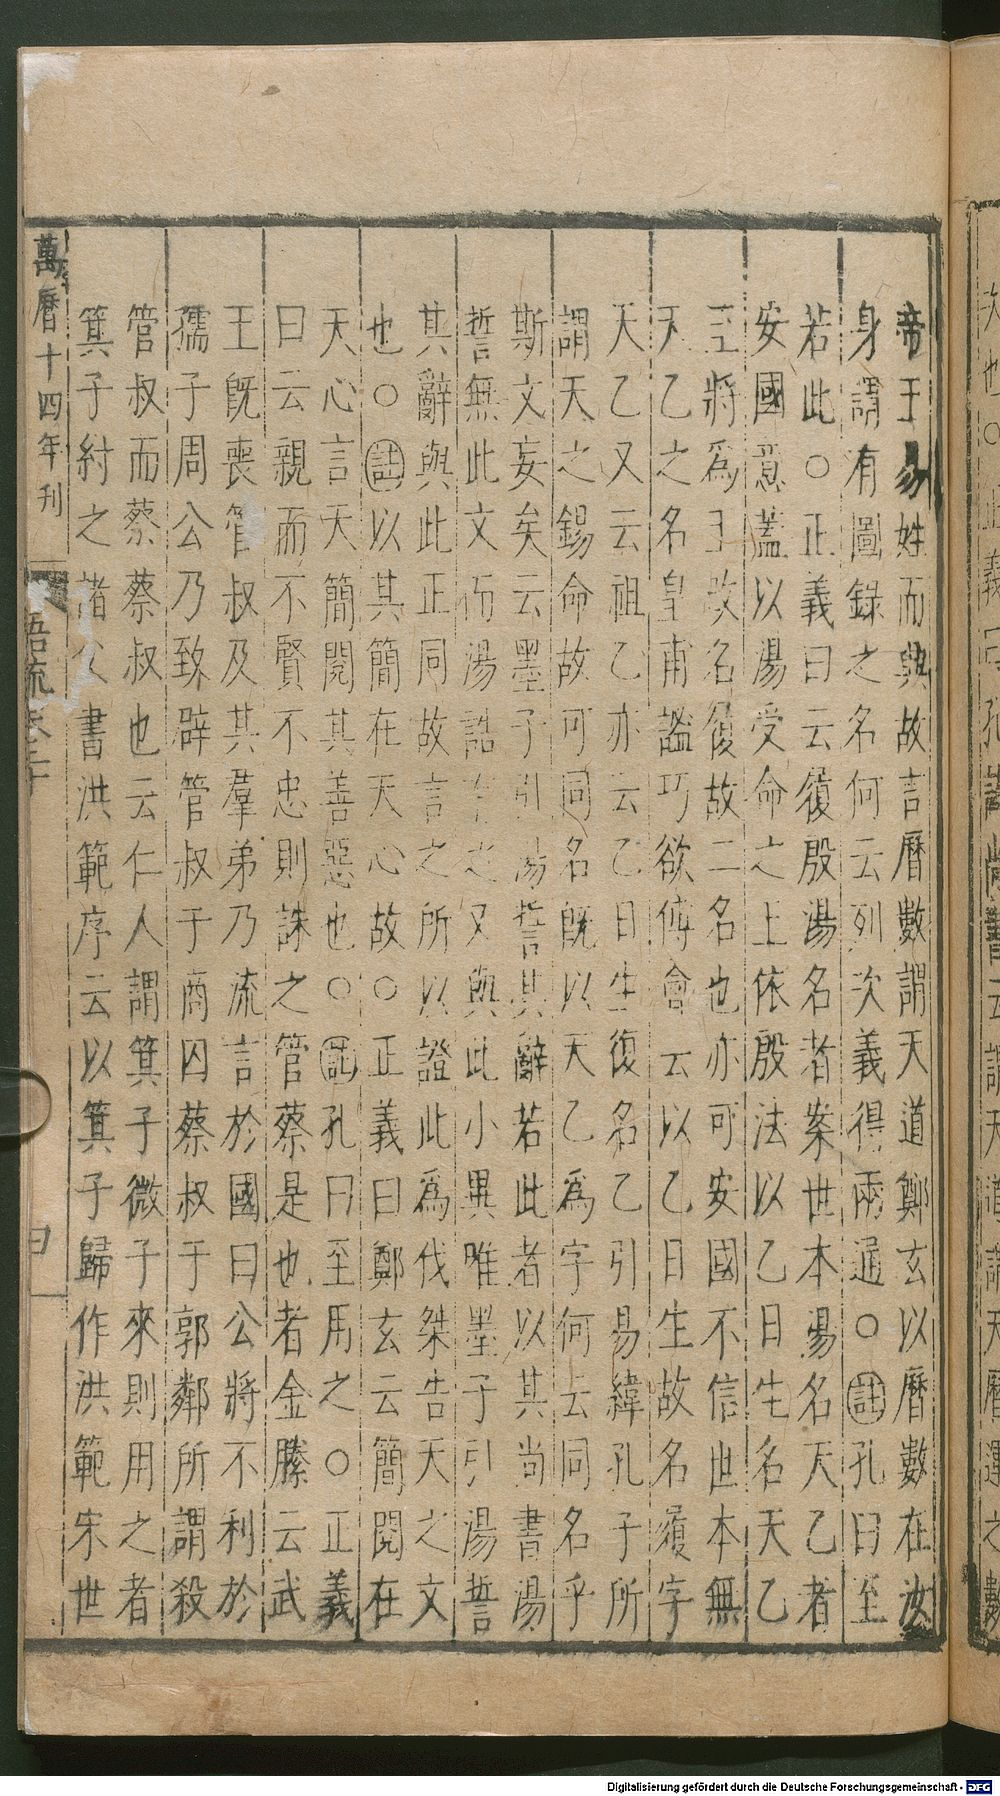 帝王易姓而興故言曆數謂天道鄭玄以曆數在汝
身謂有圖錄之名何云列次義得兩通○註孔曰至
若此○正義曰云履殷湯名者案世本湯名天乙者
安國意蓋以湯受命之上依殷法以乙日生名天乙
至將為王改名履故二名也亦可安國不信世本無
天乙之名皇甫謐巧欲傅會云以乙日生故名履字
天乙又云祖乙亦云乙日生復名乙引易緯孔子所
謂天之錫命故可同名既以天乙為字何云同名乎
斯文妄矣云墨子引湯誓其辭若此者以其尚書湯
誓無此文而湯誥有之又與此小異唯墨子引湯誓
其辭與此正同故言之所以證此為伐桀告天之文
也○註以其簡在天心故○正義曰鄭玄云簡閱在
天心言天簡閱其善惡也○註孔曰至用之○正義
曰云親而不賢不忠則誅之管蔡是也者金縢云武
王既喪管叔及其羣弟乃流言於國曰公將不利於
孺子周公乃致辟管叔于商囚蔡叔于郭鄰所謂殺
管叔而蔡蔡叔也云仁人謂箕子微子來則用之者
箕子紂之諸父書洪範序云以箕子歸作洪範宋世
萬曆十四年刊
語疏卷二十
Digitalisierung gefördert durch die Deutsche Forschungsgemeinschaft - DFG